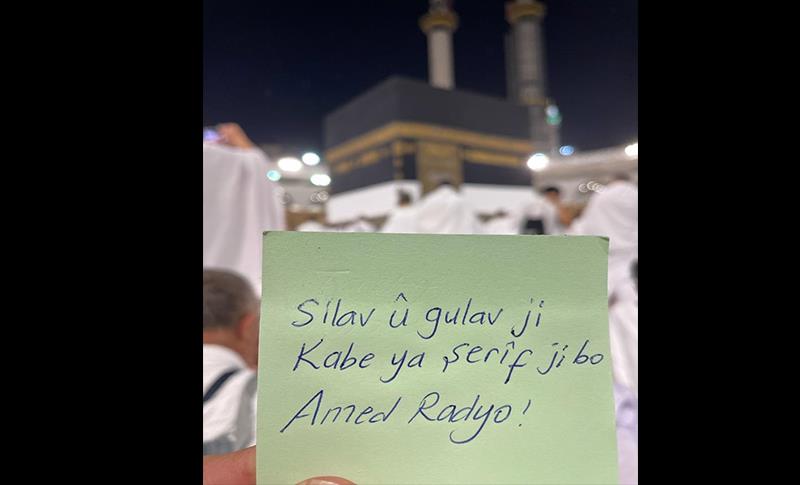 Silav û gulav ji
Kabe ya şerîf ji bo
Amed Radyo!